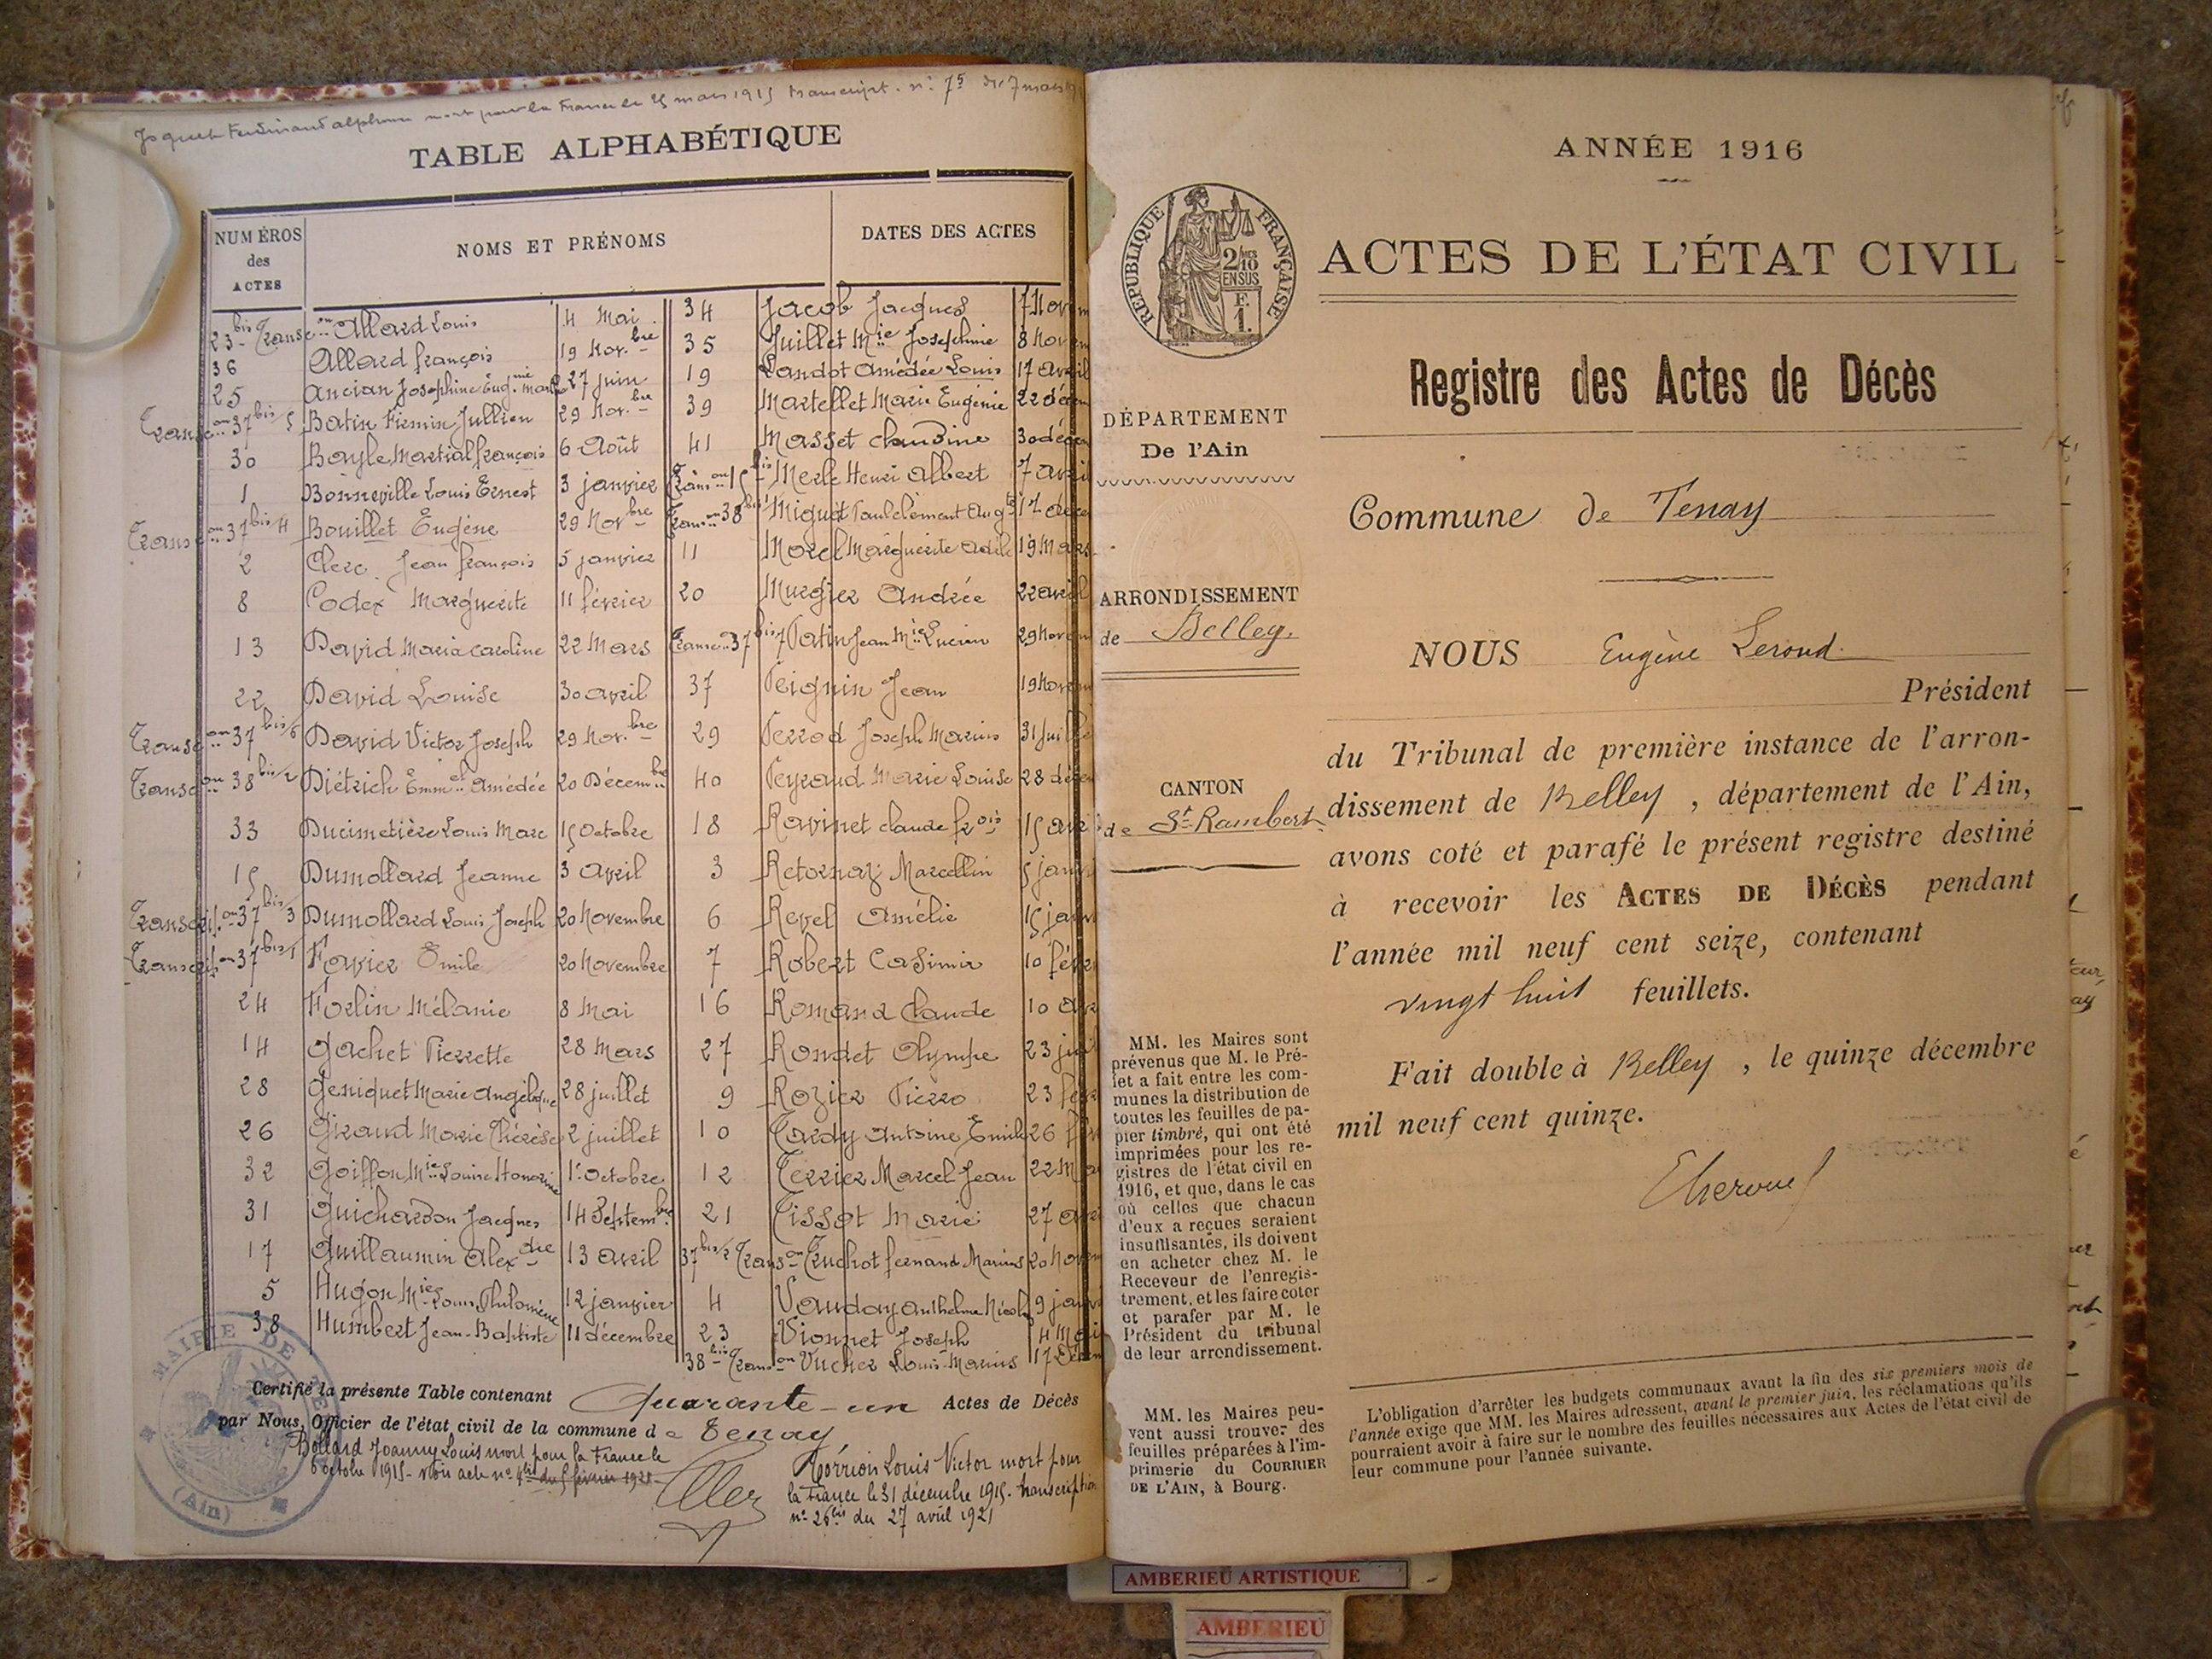 Ferdinand alphonse mort pour la France le 25 mars 1915 transcript. n° 75 du 7 mars
TABLE ALPHABÉTIQUE
NUMÉROS des ACTES
NOMS ET PRÉNOMS
DATES DES ACTES
23 bis Transc.on Allard Louis 4 Mai
36 Allard françois 19 Nov.bre
25 Ancian Josephine Eug.nie 27 juin
Transc.on 37 bis/5 Batin Firmin Jullien 29 Nov.bre
30 Bayle Martial françois 6 Août
1 Bonneville Louis Ernest 3 janvier
Transc.on 37 bis/4 Bouillet Eugène 29 Nov.bre
2 Clerc Jean françois 5 janvier
8 Codex Marguerite 11 février
13 David Maria Caroline 22 Mars
22 David Louise 30 avril
Transc.on 37 bis/6 David Victor Joseph 29 Nov.bre
Transc.on 38 bis/2 Diétrich Emm.el Amédée 20 Décem.bre
33 Ducimetière Louis Marc 15 Octobre
15 Dumollard Jeanne 3 Avril
Transcript.on 37 bis/3 Dumollard Louis Joseph 20 Novembre
Transcript.on 37 bis/1 Favier Émile 20 Novembre
24 Forlin Mélanie 8 Mai
14 Gachet Pierrette 28 Mars
28 Geniquet Marie Angélique 28 juillet
26 Giraud Marie Thérèse 2 juillet
32 Goiffon M.ie Louise Honorine 1.er Octobre
31 Guichardon Jacques 14 Septem.bre
17 Guillaumin Alex.dre 13 avril
5 Hugon M.ie Louise Philomène 12 janvier
38 Humbert Jean-Baptiste 11 décembre
34 Jacob Jacques 7 Novem
35 Juillet M.ie Josephine 8 Novem
19 Landot Amédée Louis 17 avril
39 Martellet Marie Eugénie 22 décem
41 Masset Claudine 30 décem
Trans.on 15 bis Merle Henri Albert 7 avril
Trans.on 38 bis/1 Miguet Paul Clément Aug.te 17 déce
11 Morel Marguerite Adèle 19 Mars
20 Murgier Andrée 22 avril
Transc.on 37 bis/7 Patin Jean M.ie Lucien 29 Novem
37 Peignin Jean 19 Novem
29 Perrod Joseph Marius 31 Juille
40 Peyraud Marie Louise 28 décem
18 Ravinet Claude fr.ois 15 avr
3 Retornaz Marcellin 5 janv
6 Revel Amélie 15 janv
7 Robert Casimir 10 févr
16 Romand Claude 10 avr
27 Rondet Olympe 23 juil
9 Rozier Pierre 23 fév
10 Tardy Antoine Emile 26 fév
12 Terrier Marcel Jean 22 Ma
21 Tissot Marie 27 avr
37 bis/2 Trans.on Truchot fernand Marius 20 Novem
4 Vauday Anthelme Nicolas 9 janv
23 Vionnet Joseph 4 Mai
38 bis Trans.on Vucher Louis Marius 17 Décem
Certifié la présente Table contenant Quarante-un Actes de Décès
par Nous, Officier de l'état civil de la commune de Tenay
Bollard Joanny Louis mort pour la France le
6 octobre 1915 - voir acte n° 4 bis du 5 février 1921
Louis Victor mort pour
la France le 31 décembre 1915. transcription
n° 26 bis du 27 avril 1921
MAIRIE DE TENAY
(Ain)
ANNÉE 1916
RÉPUBLIQUE FRANÇAISE
2/10 EN SUS
F.
1.
ACTES DE L'ÉTAT CIVIL
Registre des Actes de Décès
DÉPARTEMENT
De l'Ain
ARRONDISSEMENT
de Belley.
CANTON
de St Rambert
Commune de Tenay
NOUS Eugène Leroud
Président
du Tribunal de première instance de l'arron-
dissement de Belley, département de l'Ain,
avons coté et parafé le présent registre destiné
à recevoir les ACTES DE DÉCÈS pendant
l'année mil neuf cent seize, contenant
vingt huit feuillets.
Fait double à Belley, le quinze décembre
mil neuf cent quinze.
MM. les Maires sont
prévenus que M. le Pré-
fet a fait entre les com-
munes la distribution de
toutes les feuilles de pa-
pier timbré, qui ont été
imprimées pour les re-
gistres de l'état civil en
1916, et que, dans le cas
où celles que chacun
d'eux a reçues seraient
insuffisantes, ils doivent
en acheter chez M. le
Receveur de l'enregis-
trement, et les faire coter
et parafer par M. le
Président du tribunal
de leur arrondissement.
MM. les Maires peu-
vent aussi trouver des
feuilles préparées à l'im-
primerie du COURRIER
DE L'AIN, à Bourg.
L'obligation d'arrêter les budgets communaux avant la fin des six premiers mois de
l'année exige que MM. les Maires adressent, avant le premier juin, les réclamations qu'ils
pourraient avoir à faire sur le nombre des feuilles nécessaires aux Actes de l'état civil de
leur commune pour l'année suivante.
AMBERIEU ARTISTIQUE
AMBERIEU